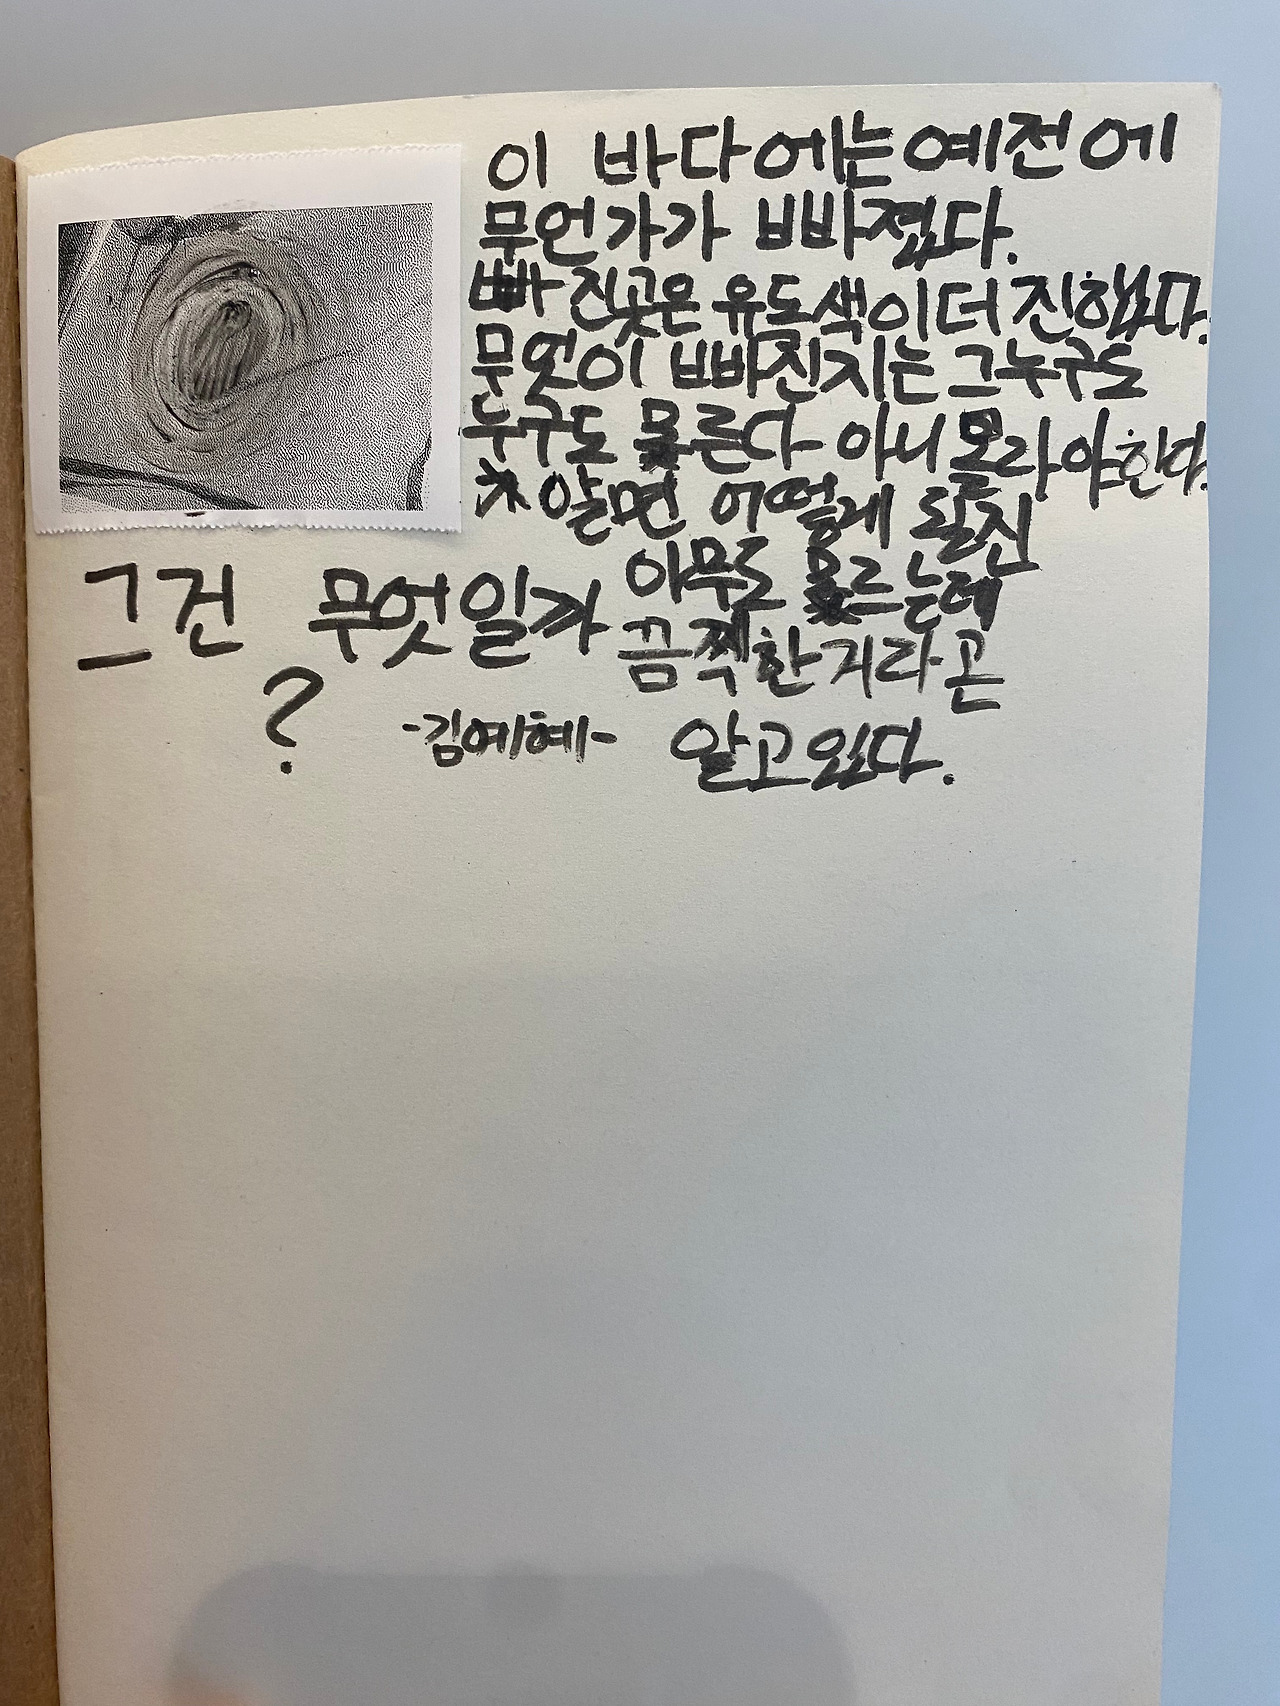 이 바다에는 예전에
무언가가 빠졌다.
빠진곳은 유독색이더 진했다.
무엇이 빠진지는 그누구도
누구도 모른다 아니 몰라야한다.
알면 어떻게 될진
아무도 모르는데
끔찍한거라곤
알고있다.
그건 무엇일까
?
-김예혜-